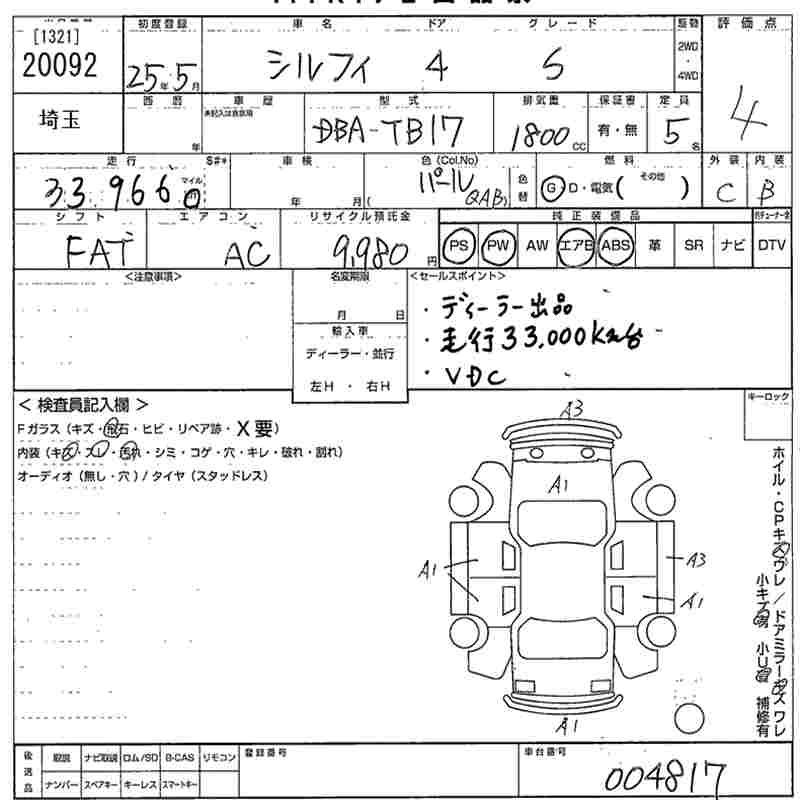 [1321]
20092
初度登録
25年5月
車名 ドア グレード
シルフィ 4 S
駆動
2WD
・
4WD
評価点
4
埼玉
西暦
年
車歴
未記入は自家用
型式
DBA-TB17
排気量
1800 CC
保証書
有・無
定員
5名
走行 S#*
33,966 マイル
km
車検
年 月(
色(Col.No)
パール
QAB)
色替
燃料
G D・電気( その他 )
外装
C
内装
B
シフト
FAT
エアコン
AC
リサイクル預託金
9,980円
純正装備品
PS PW AW エアB ABS 革 SR ナビ DTV
<注意事項>
名変期限
月 日
輸入車
ディーラー・並行
左H ・ 右H
<セールスポイント>
・ディーラー出品
・走行33,000km台
・VDC
<検査員記入欄>
Fガラス(キズ・飛石・ヒビ・リペア跡・X要)
内装(キズ・スレ・汚れ・シミ・コゲ・穴・キレ・破れ・割れ)
オーディオ(無し・穴)/タイヤ(スタッドレス)
キーロック
A3
A1
A1
A3
A1
A1
ホイル・CPキズワレ/ドアミラーキズワレ
小キズ有 小U有 補修有
後送品
取説 ナビ取説 ロム/SD B-CAS リモコン
ナンバー スペアキー キーレス スマートキー
登録番号
車台番号
004817